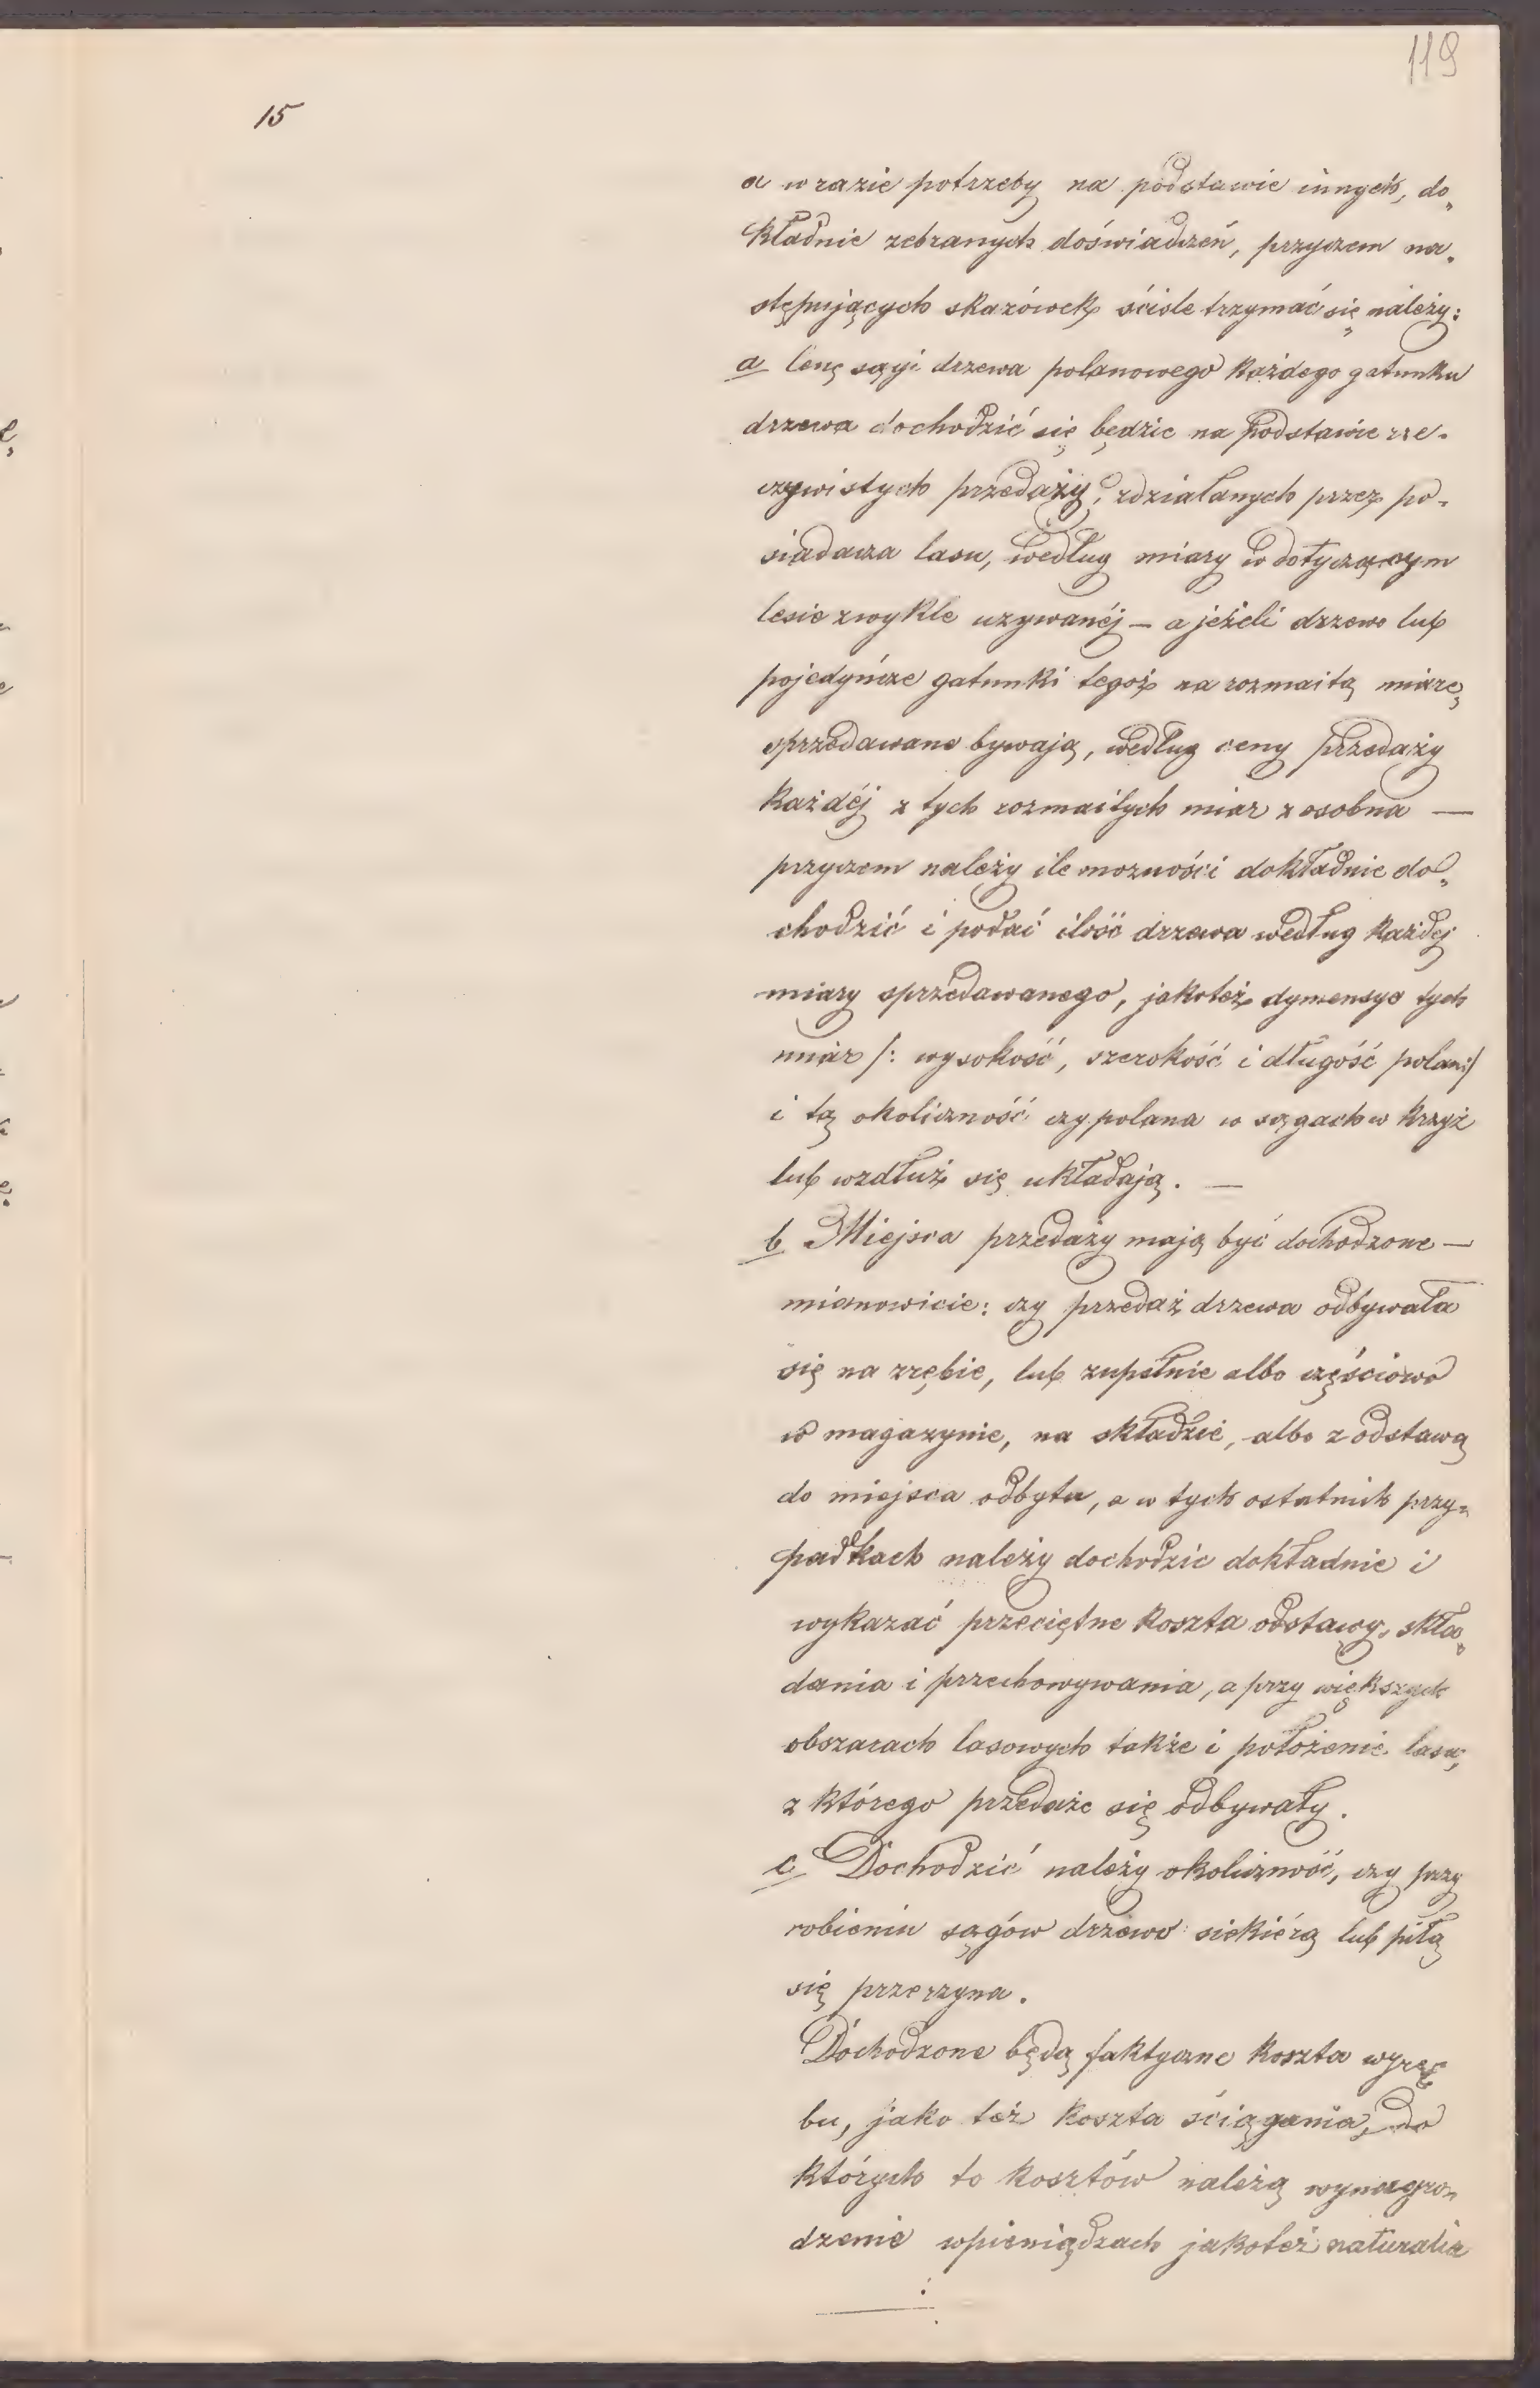 119
15
a w razie potrzeby na podstawie innych, do„
kładnie zebranych doświadczeń, przyczem na„
stępujących skazówek ściśle trzymać się należy:
a Cenę sągi drzewa polanowego każdego gatunku
drzewa dochodzić się będzie na podstawie rze„
czywistych przedaży, zdziałanych przez po„
siadacza lasu, według miary w dotyczącym
lesie zwykle uzywanéj – a jeżeli drzewo lub
pojedyńcze gatunki tegoż na rozmaitą miarę
sprzedawane bywają, według ceny przedaży
każdéj z tych rozmaitych miar z osobna —
przyczem należy ile mozności dokładnie do„
chodzić i podać ilość drzewa według każdej
miary sprzedawanego, jakoteż dymensye tych
miar /: wysokość, szerokość i długość polan:/
i tę okoliczność czy polana w sągach w krzyż
lub wzdłuż się układają. —
b Miejsca przedaży mają być dochodzone —
mianowicie: czy przedaż drzewa odbywała
się na zrębie, lub zupełnie albo częściowo
w magazynie, na składzie, albo z odstawą
do miejsca odbytu, a w tych ostatnich przy„
padkach należy dochodzić dokładnie i
wykazać przeciętne koszta odstawy, skła„
dania i przechowywania, a przy większych
obszarach lasowych także i położenie lasu,
z którego przedaże się odbywały.
c Dochodzić należy okoliczność, czy przy
robieniu sągów drzewo siekiérą lub piłą
się przerzyna.
Dochodzone będą faktyczne koszta wyrę„
bu, jako też koszta ściągania, do
których to kosztów należą wynagro„
dzenie w pieniądzach jakoteż naturalia